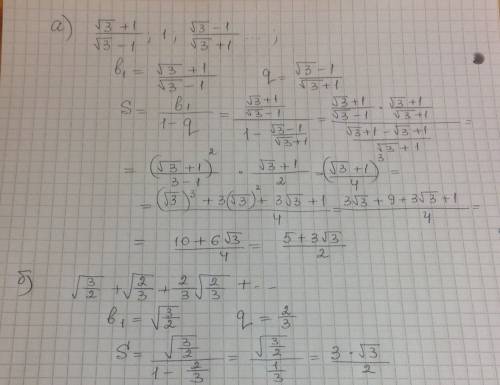 а) (√3 + 1)/(√3 − 1) ; 1 ; (√3 − 1)/(√3 + 1) ... ;
b₁ = (√3 + 1)/(√3 − 1)   q = (√3 − 1)/(√3 + 1)
S = b₁/(1 − q) = ((√3 + 1)/(√3 − 1))/(1 − (√3 − 1)/(√3 + 1)) = ((√3 + 1)/(√3 − 1) · (√3 + 1)/(√3 + 1))/((√3 + 1 − √3 + 1)/(√3 + 1)) =
= (√3 + 1)²/(3 − 1) · (√3 + 1)/2 = (√3 + 1)³/4 =
= ((√3)³ + 3(√3)² + 3√3 + 1)/4 = (3√3 + 9 + 3√3 + 1)/4 =
= (10 + 6√3)/4 = (5 + 3√3)/2
б) √(3/2) + √(2/3) + 2/3 √(2/3) + ...
b₁ = √(3/2)   q = 2/3
S = √(3/2)/(1 − 2/3) = √(3/2)/(1/3) = (3 · √3)/2